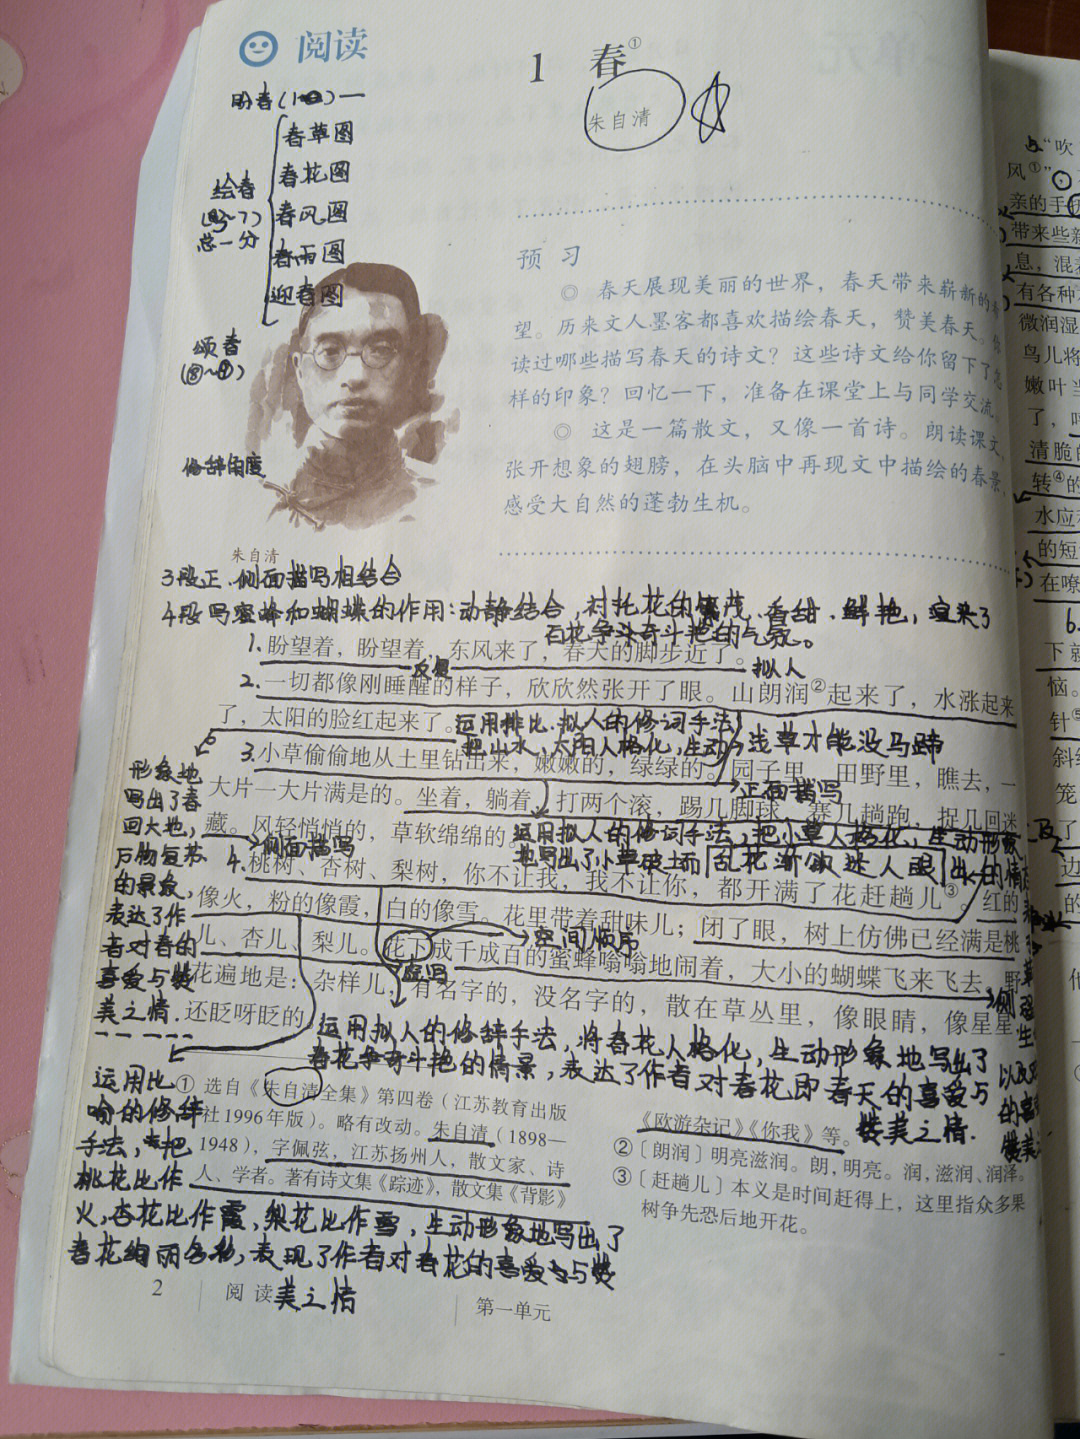 阅读
1 春①
朱自清
盼春(1~2)一
绘春
(3~7)
总一分
春草图
春花图
春风图
春雨图
迎春图
颂春
(⑧~⑩)
修辞角度
预 习
◎ 春天展现美丽的世界，春天带来崭新的希
望。历来文人墨客都喜欢描绘春天，赞美春天。你
读过哪些描写春天的诗文？这些诗文给你留下了怎
样的印象？回忆一下，准备在课堂上与同学交流。
◎ 这是一篇散文，又像一首诗。朗读课文，
张开想象的翅膀，在头脑中再现文中描绘的春景，
感受大自然的蓬勃生机。
朱自清
3段正.侧面描写相结合
4段写蜜蜂和蝴蝶的作用：动静结合，衬托花的繁茂、香甜.鲜艳，渲染了
百花争斗奇斗艳的气氛。
1.盼望着，盼望着，东风来了，春天的脚步近了。
反复
拟人
2.一切都像刚睡醒的样子，欣欣然张开了眼。山朗润②起来了，水涨起来
了，太阳的脸红起来了。
运用排比、拟人的修词手法，
把山水，太阳人格化，生动
浅草才能没马蹄
3.小草偷偷地从土里钻出来，嫩嫩的，绿绿的。园子里，田野里，瞧去，一
正面描写
大片一大片满是的。坐着，躺着，打两个滚，踢几脚球，赛几趟跑，捉几回迷
藏。风轻悄悄的，草软绵绵的。
运用拟人的修词手法，把小草人格化，生动形象
地写出了小草破土而出的情
乱花渐欲迷人眼
侧面描写
4.桃树、杏树、梨树，你不让我，我不让你，都开满了花赶趟儿③。红的
像火，粉的像霞，白的像雪。花里带着甜味儿；闭了眼，树上仿佛已经满是桃
儿、杏儿、梨儿。花下成千成百的蜜蜂嗡嗡地闹着，大小的蝴蝶飞来飞去。野
空间顺序
花遍地是：杂样儿，有名字的，没名字的，散在草丛里，像眼睛，像星星，
还眨呀眨的
形象地
写出了春
回大地，
万物复苏
的景象，
表达了作
者对春的
喜爱与赞
美之情.
运用拟人的修辞手法，将春花人格化，生动形象地写出了
春花争奇斗艳的情景，表达了作者对春花即春天的喜爱与
赞美之情.
运用比
喻的修辞
手法，把
桃花比作
火，杏花比作霞，梨花比作雪，生动形象地写出了
春花绚丽多彩，表现了作者对春花的喜爱与赞
美之情
① 选自《朱自清全集》第四卷（江苏教育出版
社1996年版）。略有改动。朱自清（1898—
1948），字佩弦，江苏扬州人，散文家、诗
人、学者。著有诗文集《踪迹》，散文集《背影》
《欧游杂记》《你我》等。
②〔朗润〕明亮滋润。朗，明亮。润，滋润、润泽。
③〔赶趟儿〕本义是时间赶得上，这里指众多果
树争先恐后地开花。
2
阅 读
第一单元
“吹
风①”
亲的手
带来些新
息，混
有各种
微润湿
鸟儿将
嫩叶当
了，
清脆的
转④的
水应
的短
在嘹
6.
下就
恼。
针⑤
斜
笼
了
边
的